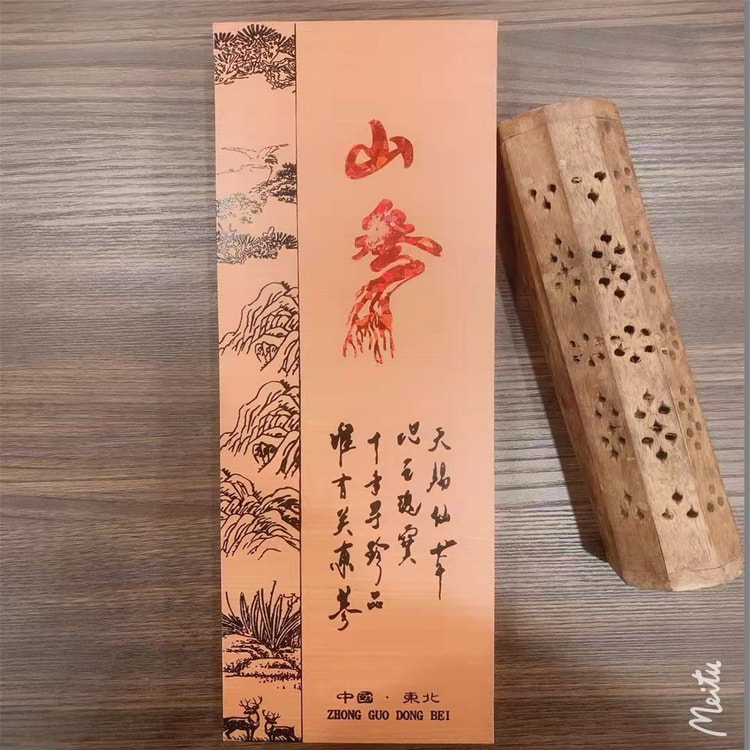 山参
天赐仙草
瑰寶
寻珍品
惟有关东参
中國·東北
ZHONG GUO DONG BEI
Meitu